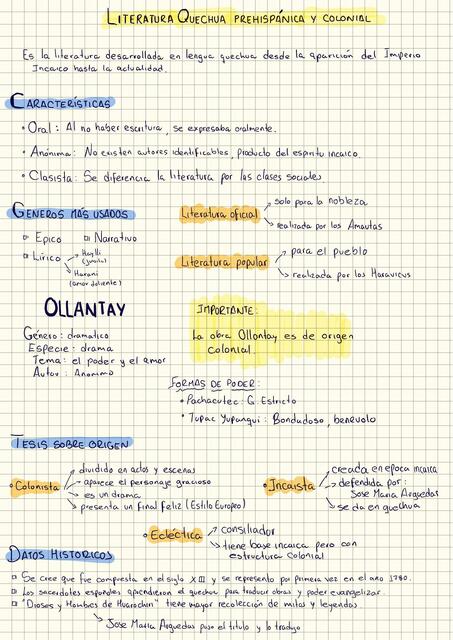 LITERATURA QUECHUA PREHISPÁNICA Y COLONIAL
Es la literatura desarrollada en lengua quechua desde la aparición del Imperio
Incaico hasta la actualidad.
CARACTERÍSTICAS
• Oral: Al no haber escritura, se expresaba oralmente.
• Anónima: No existen autores identificables, producto del espíritu incaico.
• Clasista: Se diferencia la literatura por las clases sociales
GENEROS MAS USADOS
Epico
Narrativo
Lírico
Haylli
Harawi
(amor doliente)
Literatura oficial
solo para la nobleza
realizada por los Amautas
Literatura popular
para el pueblo
realizada por los Haravicus
OLLANTAY
Género: dramatico
Especie: drama
Tema: el poder y el amor
Autor: Anonimo
IMPORTANTE:
La obra Ollantay es de origen
colonial.
FORMAS DE PODER:
• Pachacutec: G. Estricto
• Tupac Yupanqui: Bondadoso, benevolo
TESIS SOBRE ORIGEN
• Colonista
dividido en actos y escenas
aparece el personaje gracioso
es un drama
presenta un final feliz (Estilo Europeo)
• Incaista
creada en epoca incaica
defendida por:
Jose Maria Arguedas
se da en quechua
• Ecléctica
consiliador
tiene base incaica pero con
estructura colonial
DATOS HISTORICOS
Se cree que fue compuesta en el siglo XIII y se represento por primera vez en el ano 1780.
Los sacerdotes espanoles aprendieron el quechua para traducir obras y poder evangelizar.
"Dioses y Hombres de Huarochiri" tiene mayor recolección de mitos y leyendas.
Jose Maria Arguedas puso el titulo y lo tradujo